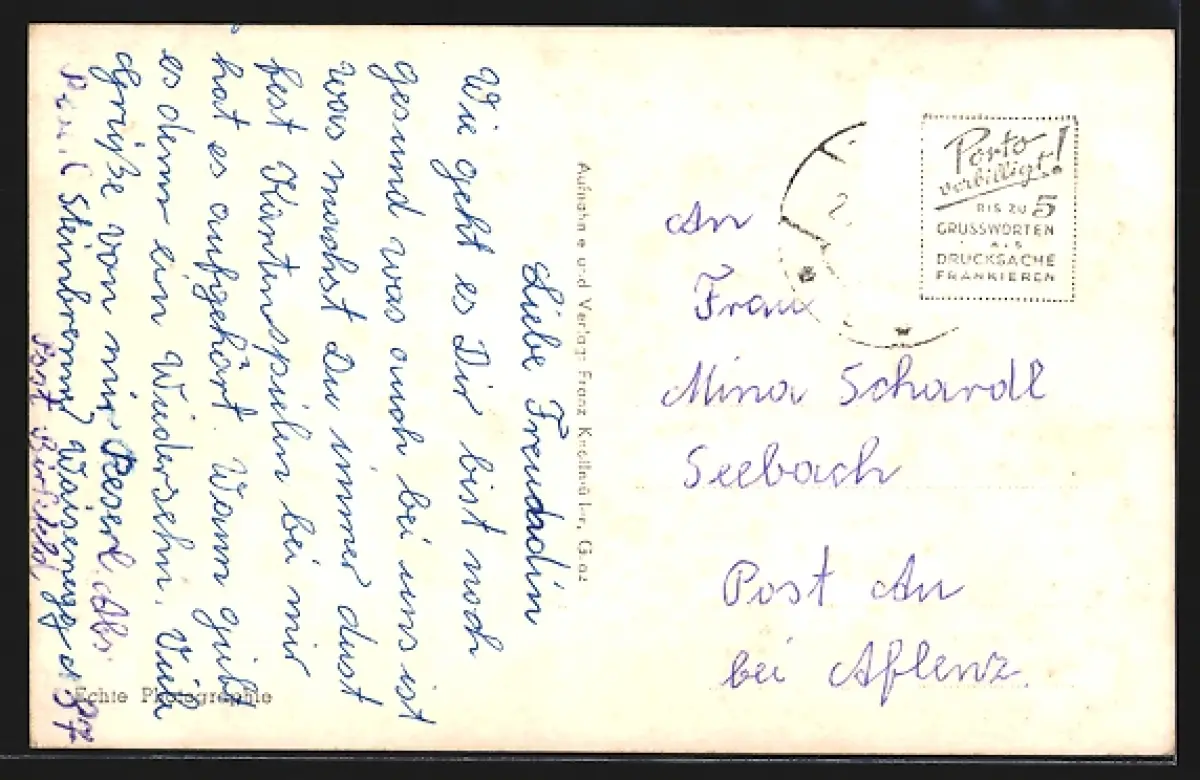 Liebe Freudin
Wie geht es Dir bist noch
gesund was auch bei uns ist
was machst Du immer dust
fest Kartenspielen bei mir
hat es aufgehört. Wann gибt
es denn ein Wiedersehn. Viele
Grüße von mir Reserl. Abs.
Steinbrenner Waisenegg 37
Post Birkfeld
Aufnahme und Verlag: Franz Knollmüller, Graz
Echte Photographie
Porto
verbilligt!
BIS ZU 5
GRUSSWORTEN
ALS
DRUCKSACHE
FRANKIEREN
2.
An
Frau
Mina Schardl
Seebach
Post Au
bei Aflenz.